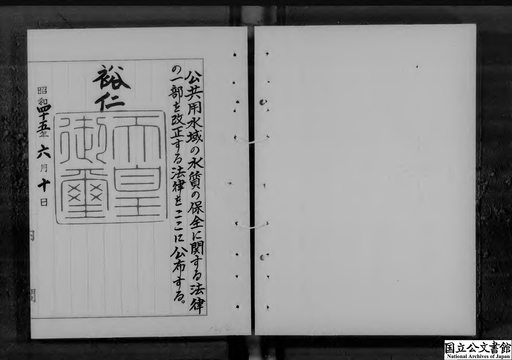 公共用水域の水質の保全に関する法律
の一部を改正する法律をここに公布する。
裕仁
天皇
御璽
昭和四十五年六月十日
国立公文書館
National Archives of Japan